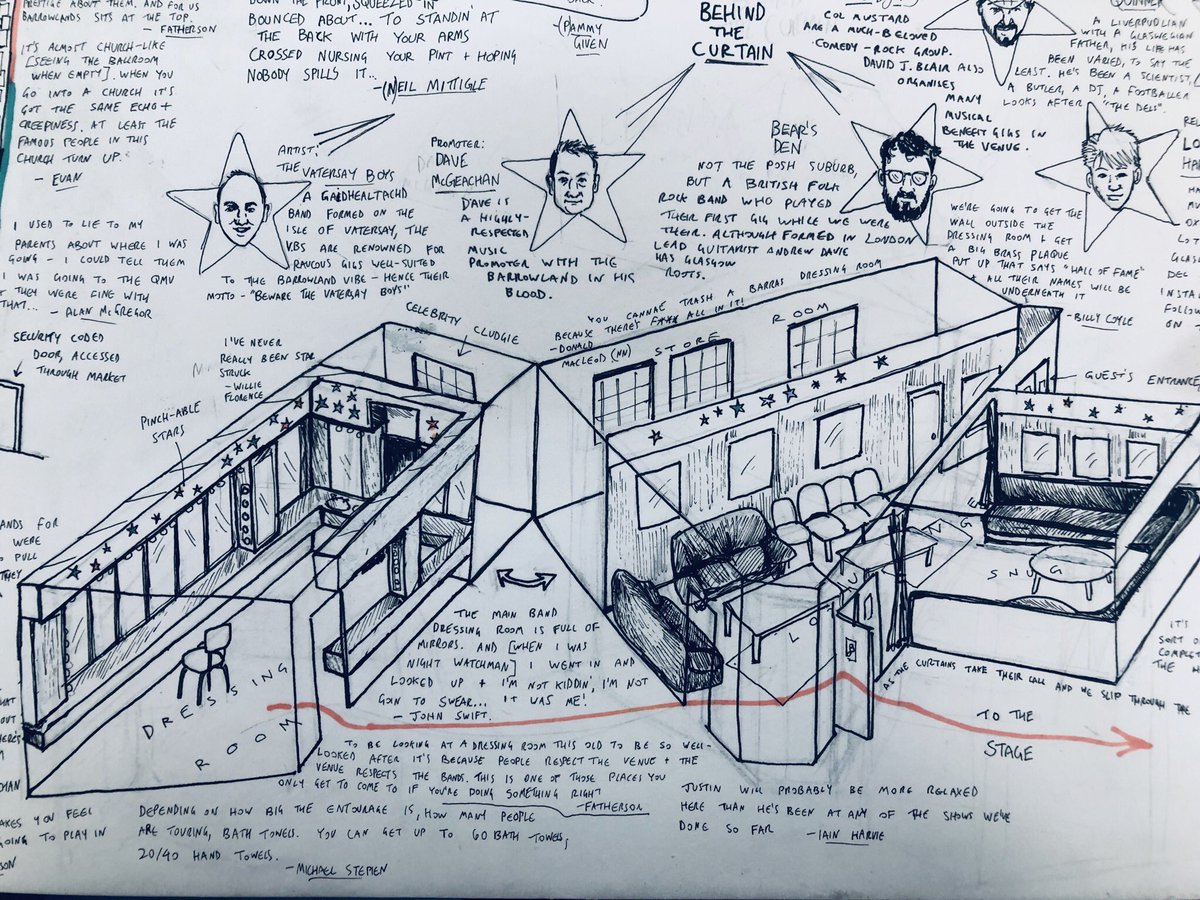 PRESTIGE ABOUT THEM. AND FOR US
BARROWLANDS SITS AT THE TOP.
- FATHERSON
IT'S ALMOST CHURCH-LIKE
[SEEING THE BALLROOM
WHEN EMPTY]. WHEN YOU
GO INTO A CHURCH IT'S
GOT THE SAME ECHO +
CREEPINESS. AT LEAST THE
FAMOUS PEOPLE IN THIS
CHURCH TURN UP."
- EVAN
DOWN THE FRONT, SQUEEZED IN
BOUNCED ABOUT... TO STANDIN' AT
THE BACK WITH YOUR ARMS
CROSSED NURSING YOUR PINT + HOPING
NOBODY SPILLS IT...
-(N)EIL MITTIGLE
(PAMMY
GIVEN
BEHIND
THE
CURTAIN
COL AUSTARD
ARE A MUCH-BELOVED
COMEDY-ROCK GROUP.
DAVID J. BLAIR ALSO
ORGANISES
MANY
MUSICAL
BENEFIT GIGS IN
THE VENUE.
A LIVERPUDLIAN
WITH A GLASWEGIAN
FATHER, HIS LIFE HAS
BEEN VARIED, TO SAY THE
LEAST. HE'S BEEN A SCIENTIST,
A BUTLER, A DJ, A FOOTBALLER
LOOKS AFTER "THE DELS".
ARTIST:
THE VATERSAY BOYS
A GAIDHEALTACHD
BAND FORMED ON THE
ISLE OF VATERSAY, THE
VBS ARE RENOWNED FOR
RAUCOUS GIGS WELL-SUITED
TO THE BARROWLAND VIBE - HENCE THEIR
MOTTO - "BEWARE THE VATERSAY BOYS"
PROMOTER:
DAVE
MCGEACHAN
DAVE IS
A HIGHLY-
RESPECTED
MUSIC
PROMOTER WITH THE
BARROWLAND IN HIS
BLOOD.
BEAR'S
DEN
NOT THE POSH SUBURB,
BUT A BRITISH FOLK
ROCK BAND WHO PLAYED
THEIR FIRST GIG WHILE WE WERE
THEIR. ALTHOUGH FORMED IN LONDON
LEAD GUITARIST ANDREW DAVIE
HAS GLASGOW
ROOTS.
WE'RE GOING TO GET THE
WALL OUTSIDE THE
DRESSING ROOM + GET
A BIG BRASS PLAQUE
PUT UP THAT SAYS "HALL OF FAME"
+ ALL THEIR NAMES WILL BE
UNDERNEATH IT
- BILLY COYLE
I USED TO LIE TO MY
PARENTS ABOUT WHERE I WAS
GOING - I COULD TELL THEM
I WAS GOING TO THE QMU
+ THEY WERE FINE WITH
THAT...
- ALAN MCGREGOR
SECURITY CODED
DOOR, ACCESSED
THROUGH MARKET
I'VE NEVER
REALLY BEEN STAR
STRUCK
- WILLIE
FLORENCE
PINCH-ABLE
STARS
CELEBRITY CLUDGIE
YOU CANNAE TRASH A BARRAS DRESSING ROOM
BECAUSE THERE'S F*** ALL IN IT!
- DONALD
MACLEOD (NN)
STORE ROOM
GUESTS ENTRANCE
DRESSING
ROOM
THE MAIN BAND
DRESSING ROOM IS FULL OF
MIRRORS. AND [WHEN I WAS
NIGHT WATCHMAN] I WENT IN AND
LOOKED UP + I'M NOT KIDDIN', I'M NOT
GOIN TO SWEAR... IT WAS ME!
- JOHN SWIFT.
SNUG
AS THE CURTAINS TAKE THEIR CALL AND WE SLIP THROUGH THE
TO THE
STAGE
TO BE LOOKING AT A DRESSING ROOM THIS OLD TO BE SO WELL-
LOOKED AFTER IT'S BECAUSE PEOPLE RESPECT THE VENUE + THE
VENUE RESPECTS THE BANDS. THIS IS ONE OF THOSE PLACES YOU
ONLY GET TO COME TO IF YOU'RE DOING SOMETHING RIGHT
- FATHERSON
DEPENDING ON HOW BIG THE ENTOURAGE IS, HOW MANY PEOPLE
ARE TOURING, BATH TOWELS. YOU CAN GET UP TO 60 BATH TOWELS,
20/40 HAND TOWELS.
- MICHAEL STEPIEN
JUSTIN WILL PROBABLY BE MORE RELAXED
HERE THAN HE'S BEEN AT ANY OF THE SHOWS WE'VE
DONE SO FAR
- IAIN HARVIE